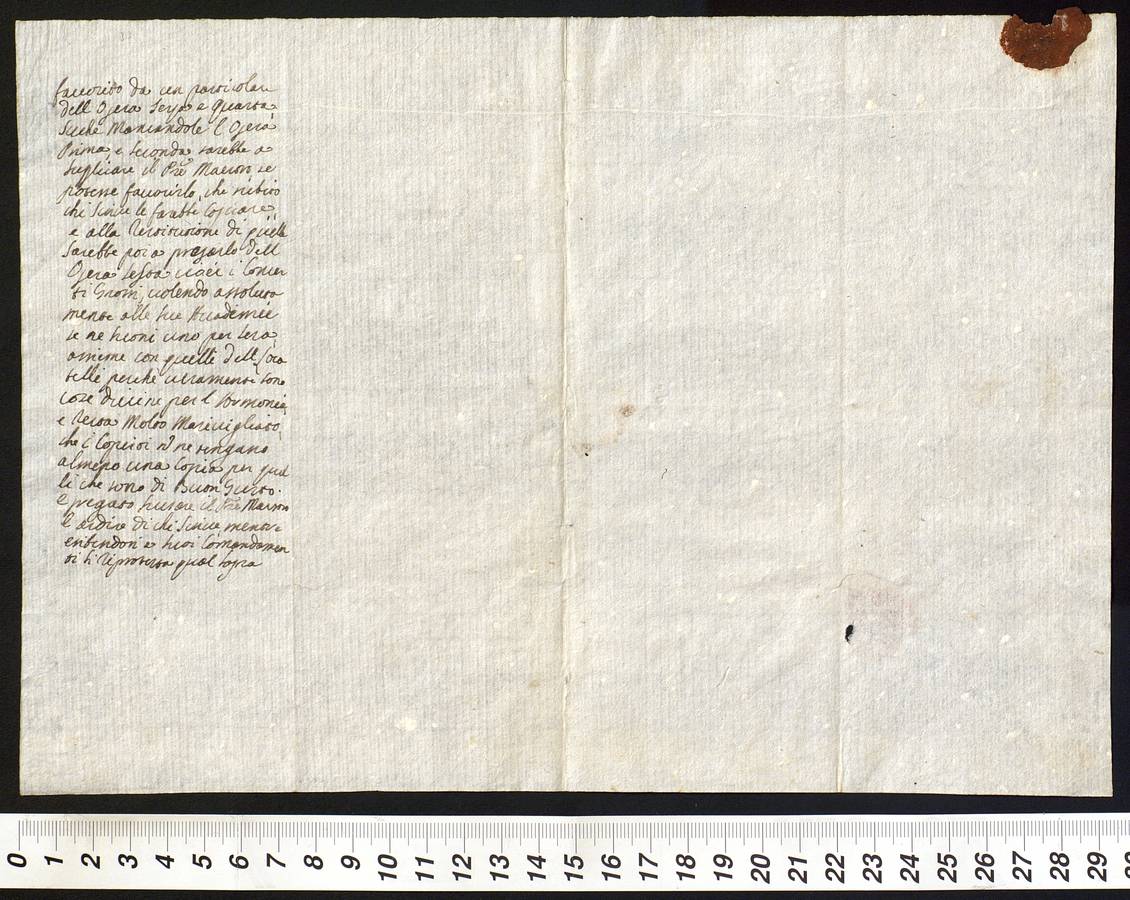 favorito da un particolare
dell Opera Terza e Quarta
sicche Mancandole l Opera
Prima, e Seconda sarebbe a
suplicare il Pre Marson se
potesse favorirlo, che subito
chi scrive le farebbe Copiare
e alla restitutione di quelle
sarebbe poi a pregarlo dell
Opera sesta cioei i Concer
ti Grossi, volendo assoluta
mente alle sue Accademie
se ne suoni uno per sera
assieme con quelli dell Cora
telli perche veramente sono
cose divine per l Armonia
e resta Molto Maravigliato,
che i Copisti n ne tengano
almeno una Copia per quel
li che sono di Buon Gusto.
E pregato scusare il Pre Marson
l ardire di chi scrive mentre
esibendosi a suoi Comandamen
ti si riprotesta qual sopra
0 1 2 3 4 5 6 7 8 9 10 11 12 13 14 15 16 17 18 19 20 21 22 23 24 25 26 27 28 29